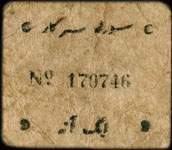 سورتی سرکار
No 170746
ایک آنہ